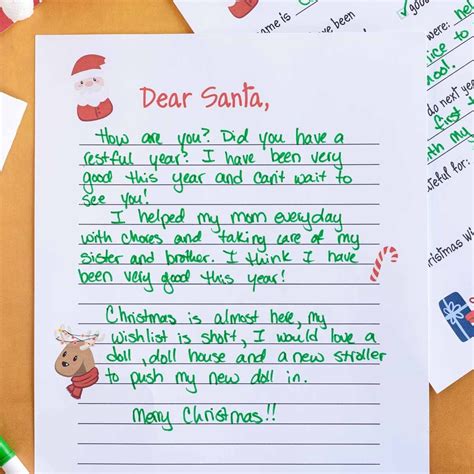 Dear Santa,
How are you? Did you have a
restful year? I have been very
good this year and can't wait to
see you!
I helped my mom everyday
with chores and taking care of my
sister and brother. I think I have
been very good this year!
Christmas is almost here, my
wishlist is short, I would love a
doll, doll house and a new stroller
to push my new doll in.
Merry Christmas!!
name is
have been
good
were: help
nice to
school.
do next year
first t
with my
grateful for:
Christmas wis